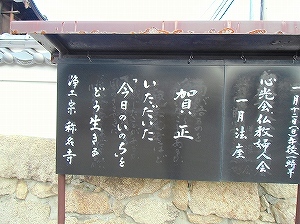 一月十二日(日)午後一時半
心光会仏教婦人会
一月法座
賀正
いただいた
「今日のいのち」を
どう生きる
浄土宗称名寺